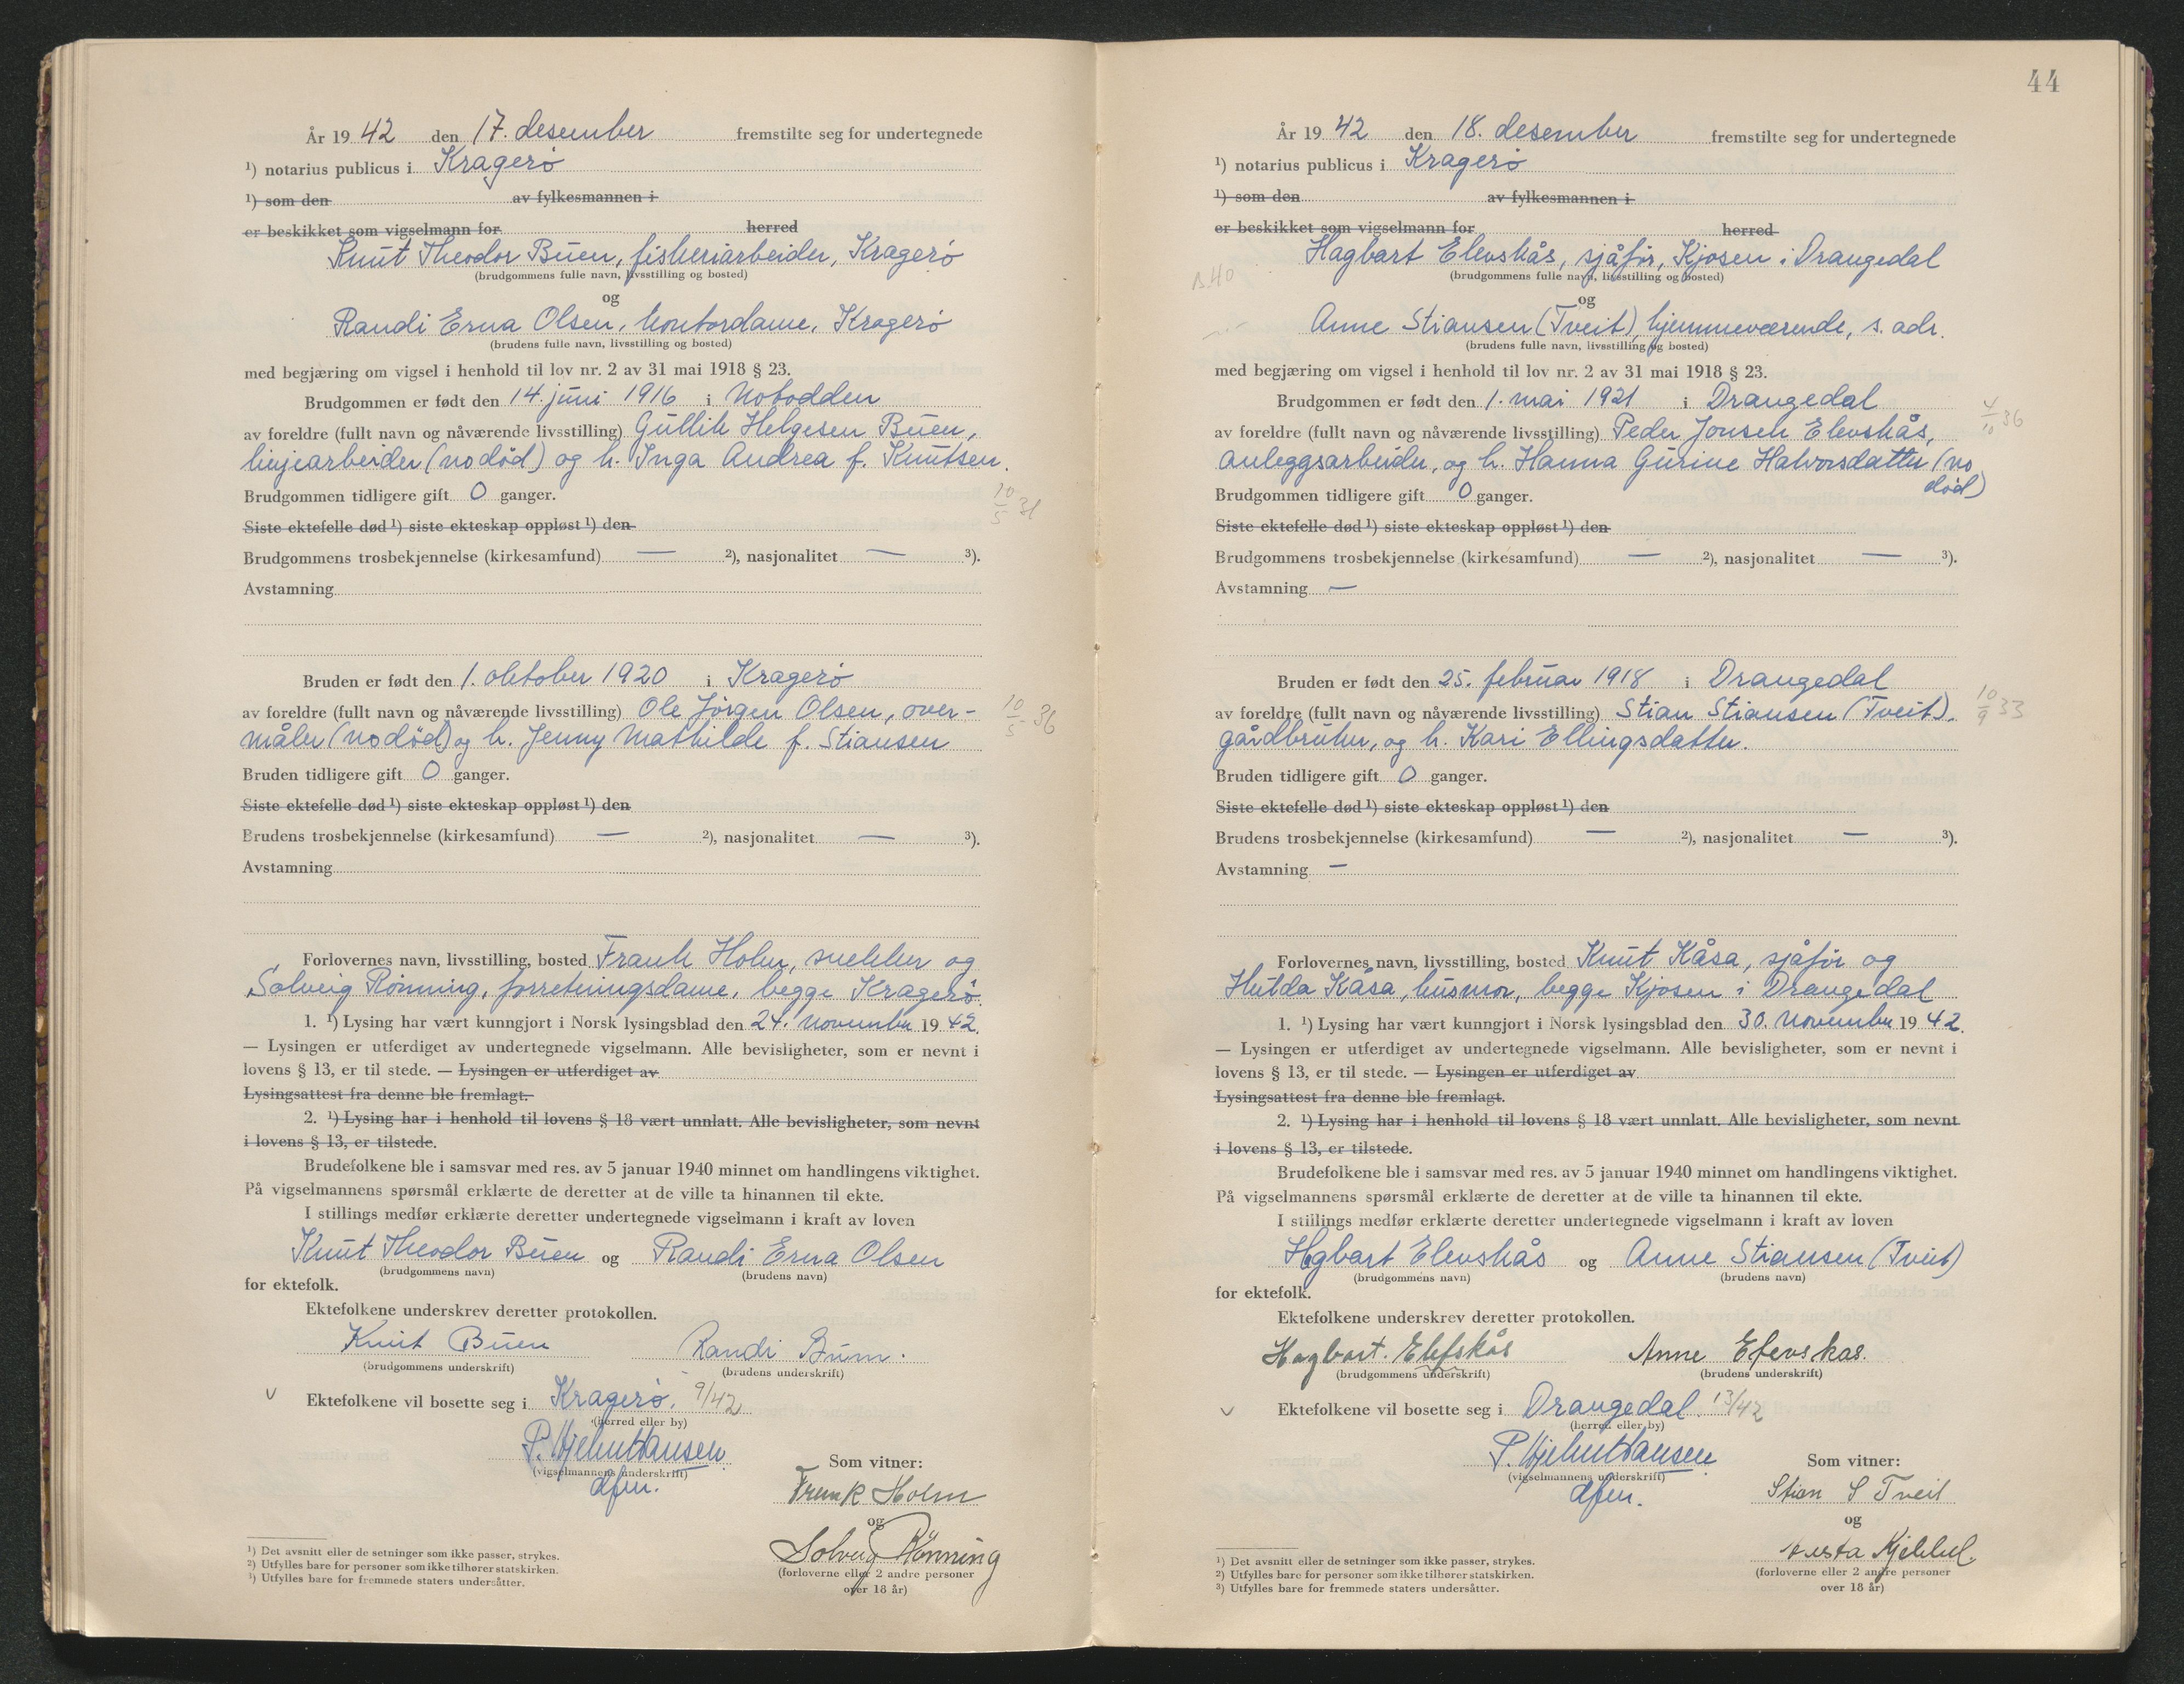 År 1942 den 17. desember fremstilte seg for undertegnede
¹) notarius publicus i Kragerø
¹) som den av fylkesmannen i
er beskikket som vigselmann for herred
Knut Theodor Buen, fisheriarbeider, Kragerø
(brudgommens fulle navn, livsstilling og bosted)
og
Randi Erna Olsen, kontordame, Kragerø
(brudens fulle navn, livsstilling og bosted)
med begjæring om vigsel i henhold til lov nr. 2 av 31 mai 1918 § 23.
Brudgommen er født den 14. juni 1916 i Notodden
av foreldre (fullt navn og nåværende livsstilling) Gullik Helgesen Buen,
linjearbeider (no død) og h. Inga Andrea f. Knutsen.
Brudgommen tidligere gift 0 ganger.
10/5 31
Siste ektefelle død ¹) siste ekteskap oppløst ¹) den
Brudgommens trosbekjennelse (kirkesamfund) — ²), nasjonalitet — ³).
Avstamning
Bruden er født den 1. oktober 1920 i Kragerø
av foreldre (fullt navn og nåværende livsstilling) Ole Jørgen Olsen, over-
10/5 36
måler (no død) og h. Jenny Mathilde f. Stiansen
Bruden tidligere gift 0 ganger.
Siste ektefelle død ¹) siste ekteskap oppløst ¹) den
Brudens trosbekjennelse (kirkesamfund) — ²), nasjonalitet — ³).
Avstamning
Forlovernes navn, livsstilling, bosted Frank Holm, snekker og
Solveig Rønning, forretningsdame, begge Kragerø.
1. ¹) Lysing har vært kunngjort i Norsk lysingsblad den 24. november 1942.
— Lysingen er utferdiget av undertegnede vigselmann. Alle bevisligheter, som er nevnt i
lovens § 13, er til stede. — Lysingen er utferdiget av
Lysingsattest fra denne ble fremlagt.
2. ¹) Lysing har i henhold til lovens § 18 vært unnlatt. Alle bevisligheter, som nevnt
i lovens § 13, er tilstede.
Brudefolkene ble i samsvar med res. av 5 januar 1940 minnet om handlingens viktighet.
På vigselmannens spørsmål erklærte de deretter at de ville ta hinannen til ekte.
I stillings medfør erklærte deretter undertegnede vigselmann i kraft av loven
Knut Theodor Buen og Randi Erna Olsen
(brudgommens navn) (brudens navn)
for ektefolk.
Ektefolkene underskrev deretter protokollen.
Knut Buen Randi Buen.
(brudgommens underskrift) (brudens underskrift)
v Ektefolkene vil bosette seg i Kragerø. 9/42
(herred eller by)
P. Hjelm Hansen
(vigselmannens underskrift)
dfm.
Som vitner:
Frank Holm
og
Solveig Rønning
(forloverne eller 2 andre personer
over 18 år)
¹) Det avsnitt eller de setninger som ikke passer, strykes.
²) Utfylles bare for personer som ikke tilhører statskirken.
³) Utfylles bare for fremmede staters undersåtter.
44
År 1942 den 18. desember fremstilte seg for undertegnede
¹) notarius publicus i Kragerø
¹) som den av fylkesmannen i
er beskikket som vigselmann for herred
Hagbart Elevskås, sjåfør, Kjosen i Drangedal
(brudgommens fulle navn, livsstilling og bosted)
og
Anne Stiansen (Tveit), hjemmeværende, s. adr.
(brudens fulle navn, livsstilling og bosted)
med begjæring om vigsel i henhold til lov nr. 2 av 31 mai 1918 § 23.
Brudgommen er født den 1. mai 1921 i Drangedal
4/10 36
av foreldre (fullt navn og nåværende livsstilling) Peder Jonsen Elevskås,
anleggsarbeider, og h. Hanna Gurine Halvorsdatter (no
død)
Brudgommen tidligere gift 0 ganger.
Siste ektefelle død ¹) siste ekteskap oppløst ¹) den
Brudgommens trosbekjennelse (kirkesamfund) — ²), nasjonalitet — ³).
Avstamning —
Bruden er født den 25. februar 1918 i Drangedal
10/9 33
av foreldre (fullt navn og nåværende livsstilling) Stian Stiansen (Tveit),
gårdbruker, og h. Kari Ellingsdatter.
Bruden tidligere gift 0 ganger.
Siste ektefelle død ¹) siste ekteskap oppløst ¹) den
Brudens trosbekjennelse (kirkesamfund) — ²), nasjonalitet — ³).
Avstamning —
Forlovernes navn, livsstilling, bosted Knut Kåsa, sjåfør og
Hulda Kåsa, husmor, begge Kjosen i Drangedal
1. ¹) Lysing har vært kunngjort i Norsk lysingsblad den 30. november 1942.
— Lysingen er utferdiget av undertegnede vigselmann. Alle bevisligheter, som er nevnt i
lovens § 13, er til stede. — Lysingen er utferdiget av
Lysingsattest fra denne ble fremlagt.
2. ¹) Lysing har i henhold til lovens § 18 vært unnlatt. Alle bevisligheter, som nevnt
i lovens § 13, er tilstede.
Brudefolkene ble i samsvar med res. av 5 januar 1940 minnet om handlingens viktighet.
På vigselmannens spørsmål erklærte de deretter at de ville ta hinannen til ekte.
I stillings medfør erklærte deretter undertegnede vigselmann i kraft av loven
Hagbart Elevskås og Anne Stiansen (Tveit)
(brudgommens navn) (brudens navn)
for ektefolk.
Ektefolkene underskrev deretter protokollen.
Hagbart. Elefskås Anne Elevskas.
(brudgommens underskrift) (brudens underskrift)
v Ektefolkene vil bosette seg i Drangedal. 13/42
(herred eller by)
P. Hjelm Hansen
(vigselmannens underskrift)
dfm.
Som vitner:
Stian S Tveit
og
(forloverne eller 2 andre personer
over 18 år)
¹) Det avsnitt eller de setninger som ikke passer, strykes.
²) Utfylles bare for personer som ikke tilhører statskirken.
³) Utfylles bare for fremmede staters undersåtter.